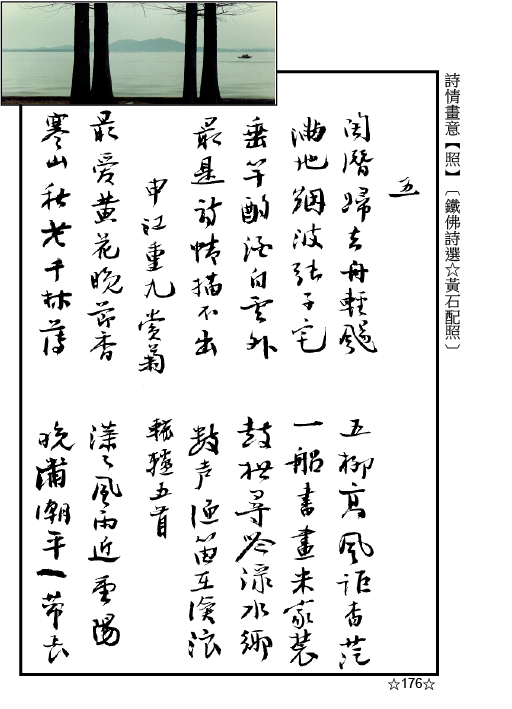 詩情畫意【照】〔鐵佛詩選☆黃石配照〕
五
陶潛歸去舟輕颺 五柳高風詎杳茫
滿地烟波張子宅 一船書畫米家裝
垂竿酌酒白雲外 鼓枻尋吟綠水鄉
最是詩情描不出 數声漁笛互滄浪
申江重九賞菊 轆轤五首
最愛黃花晚節香 濛々風雨近重陽
寒山秋老千林薄 晚浦潮平一帶長
☆176☆